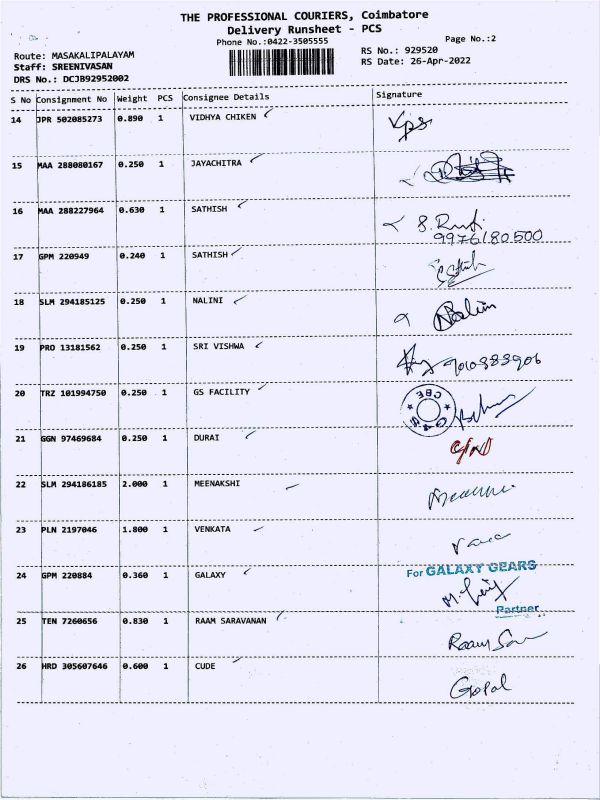 THE PROFESSIONAL COURIERS, Coimbatore
Delivery Runsheet - PCS
Phone No.:0422-3505555
Page No.:2
Route: MASAKALIPALAYAM
RS No.: 929520
Staff: SREENIVASAN
RS Date: 26-Apr-2022
DRS No.: DCJB92952002
S No Consignment No Weight PCS Consignee Details Signature
14 JPR 502085273 0.890 1 VIDHYA CHIKEN
15 MAA 288080167 0.250 1 JAYACHITRA
16 MAA 288227964 0.630 1 SATHISH
9976180500
17 GPM 220949 0.240 1 SATHISH
18 SLM 294185125 0.250 1 NALINI Nalini
19 PRO 13181562 0.250 1 SRI VISHWA
20 TRZ 101994750 0.250 1 GS FACILITY
CBE
21 GGN 97469684 0.250 1 DURAI
22 SLM 294186185 2.000 1 MEENAKSHI
23 PLN 2197046 1.800 1 VENKATA
24 GPM 220884 0.360 1 GALAXY For GALAXY GEARS
Partner
25 TEN 7260656 0.830 1 RAAM SARAVANAN
26 HRD 305607646 0.600 1 CUDE Gopal